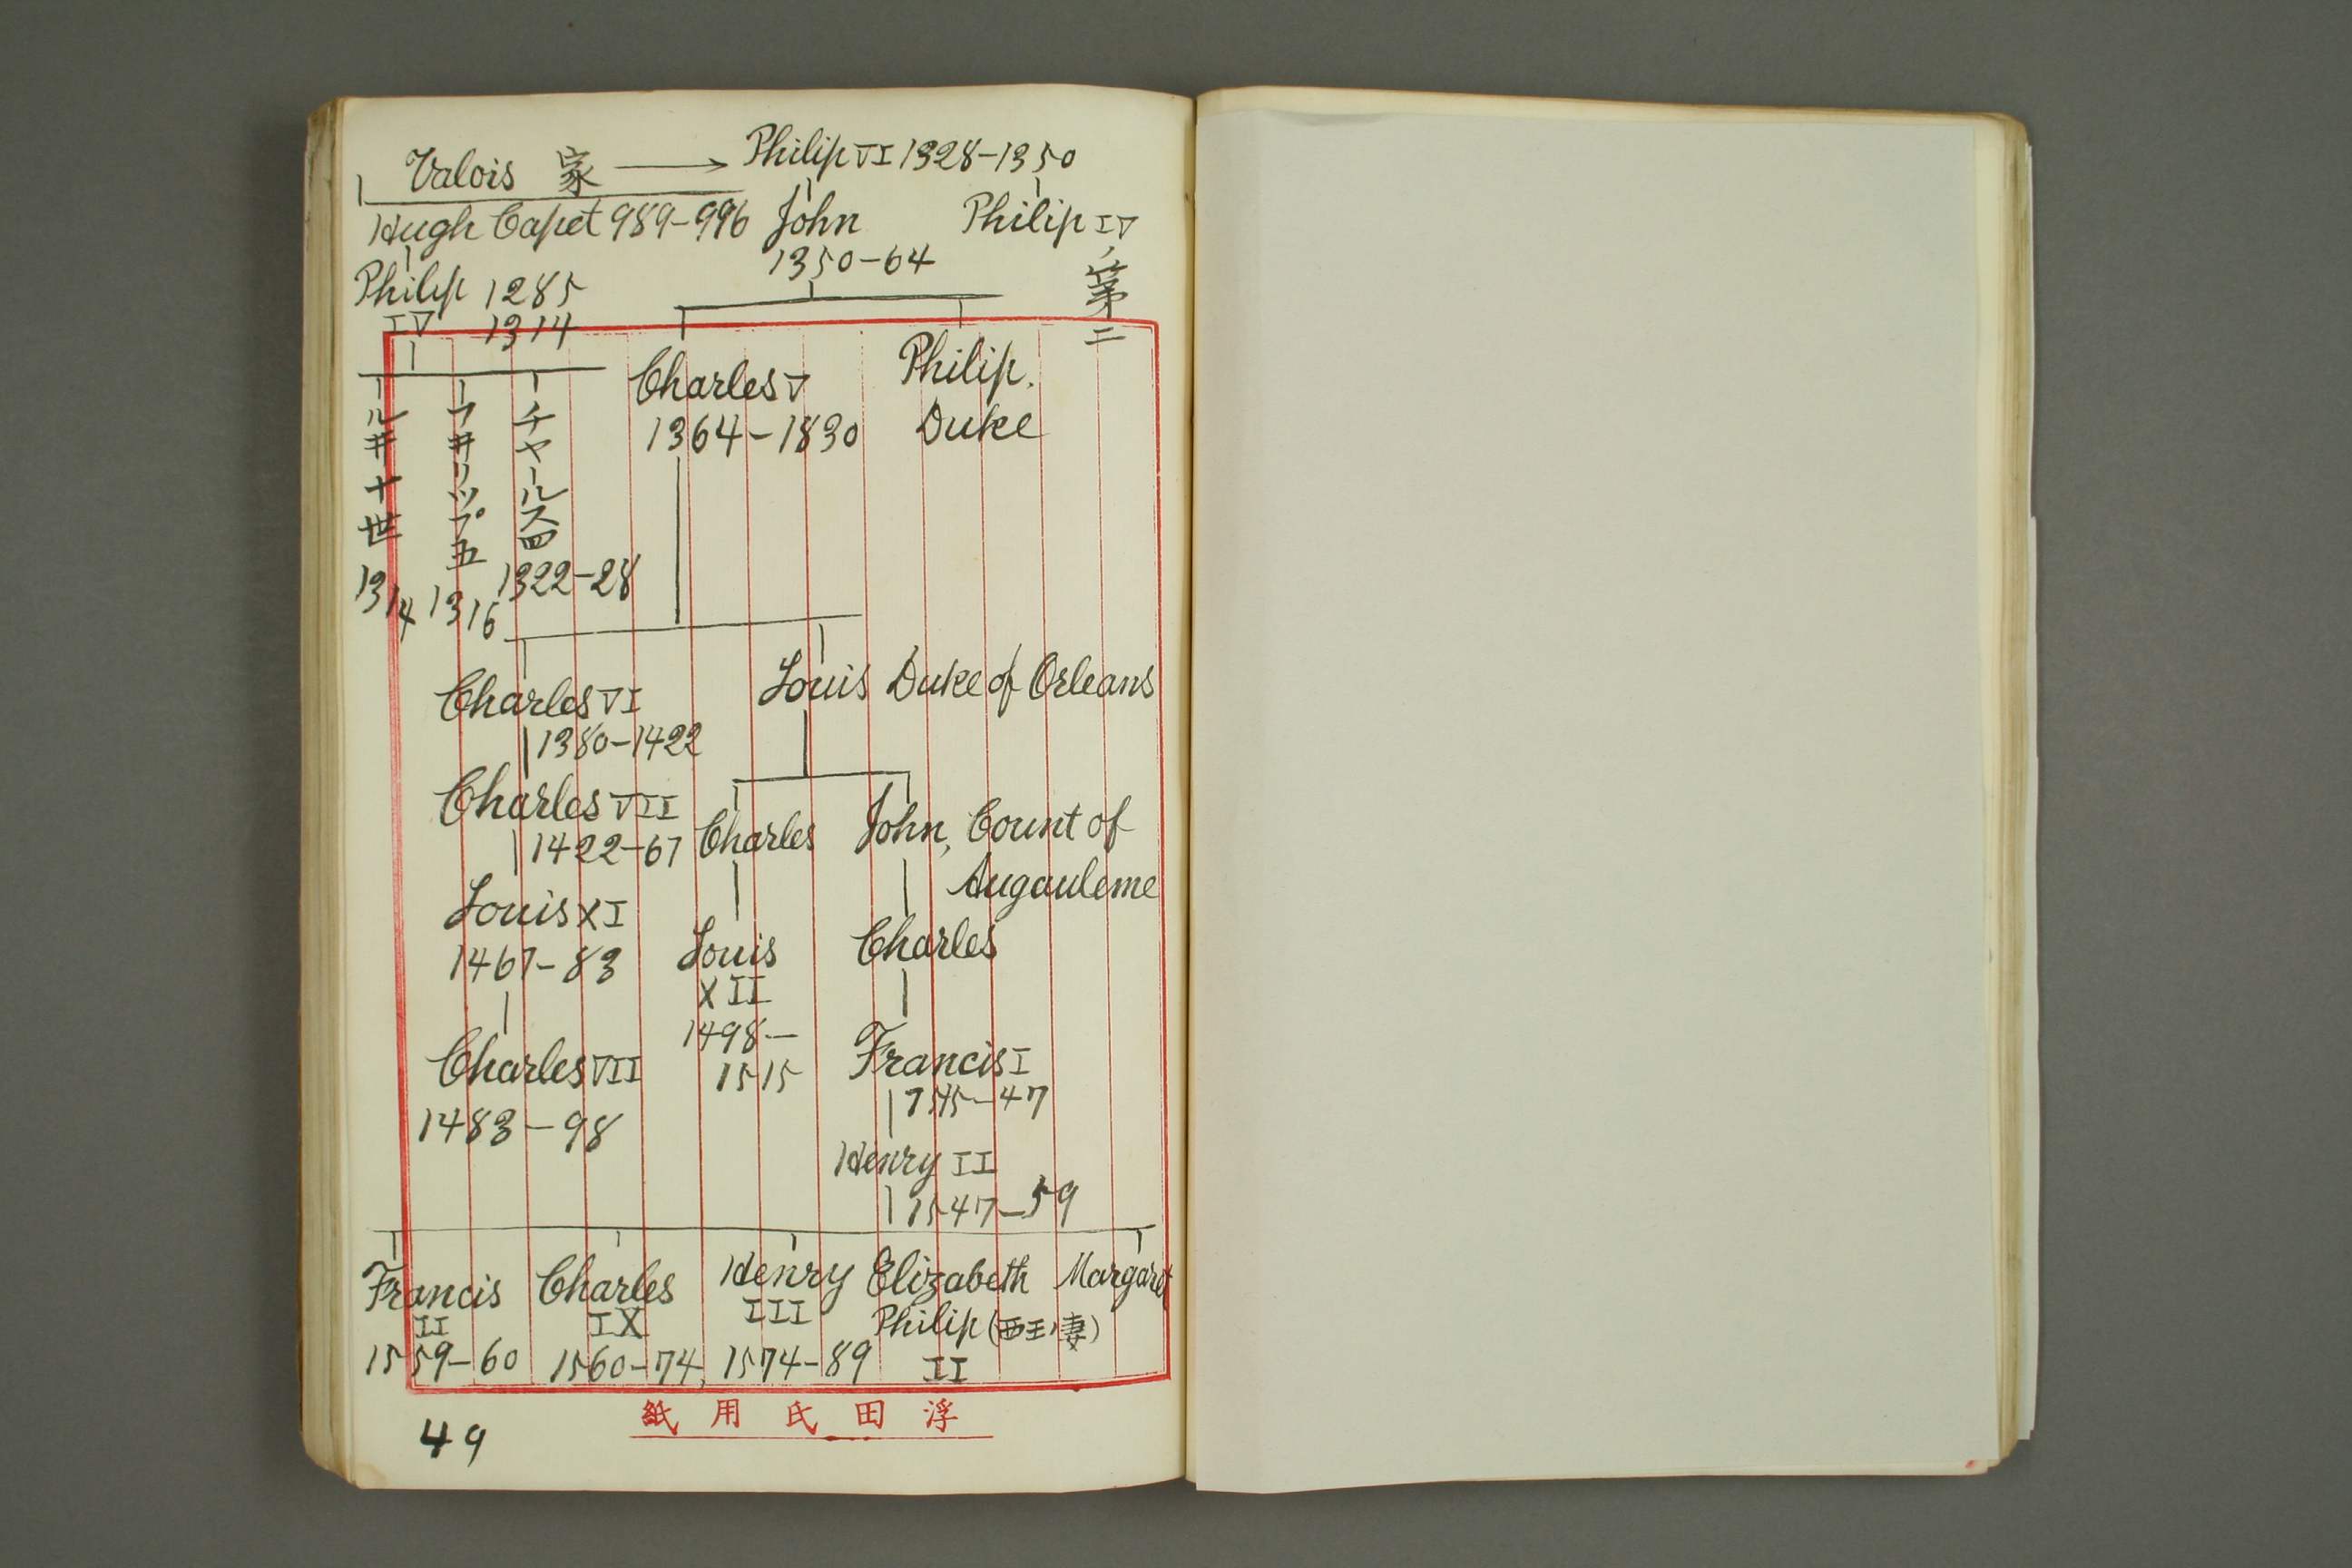 Valois 家 → Philip VI 1328-1350
Hugh Capet 989-996 John Philip IV
ノ第二
1350-64
Philip 1285
IV 1314
Charles V Philip.
1364-1830 Duke
ルヰ十世
1314
フヰリップ五
1316
チャールス四
1322-28
Charles VI Louis Duke of Orleans
1380-1422
Charles VII
1422-67 Charles John, Count of
Augauleme
Louis XI
1467-83 Louis Charles
XII
1498-
1515
Charles VII Francis I
1483-98 1545-47
Henry II
1547-59
Francis Charles Henry Elizabeth Margaret
II IX III Philip (西王ノ妻)
1559-60 1560-74, 1574-89 II
紙用氏田浮
49